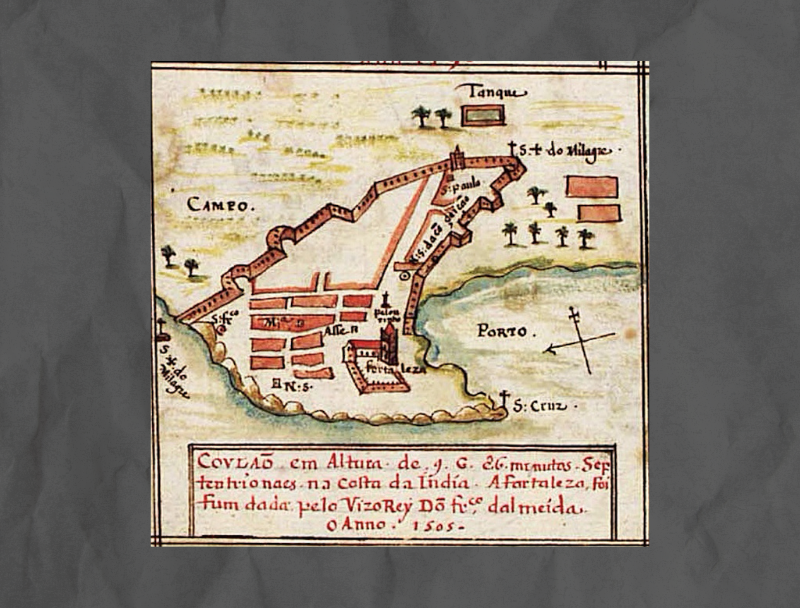 Tanque
S. ✝ do Milagre.
S. Paulo
CAMPO.
N. S. da
S. frco
Mia
Alfe
PORTO.
fortaleza
S. ✝ do Milagre
N. S.
S: Cruz.
COVLAÕ em Altura de 9. G. 26. minutos. Sep
tentrionaes. na Costa da India. A fortaleza, foi
fum dada. pelo VizoRey Dõ frco. dalmeida.
O Anno. 1505.